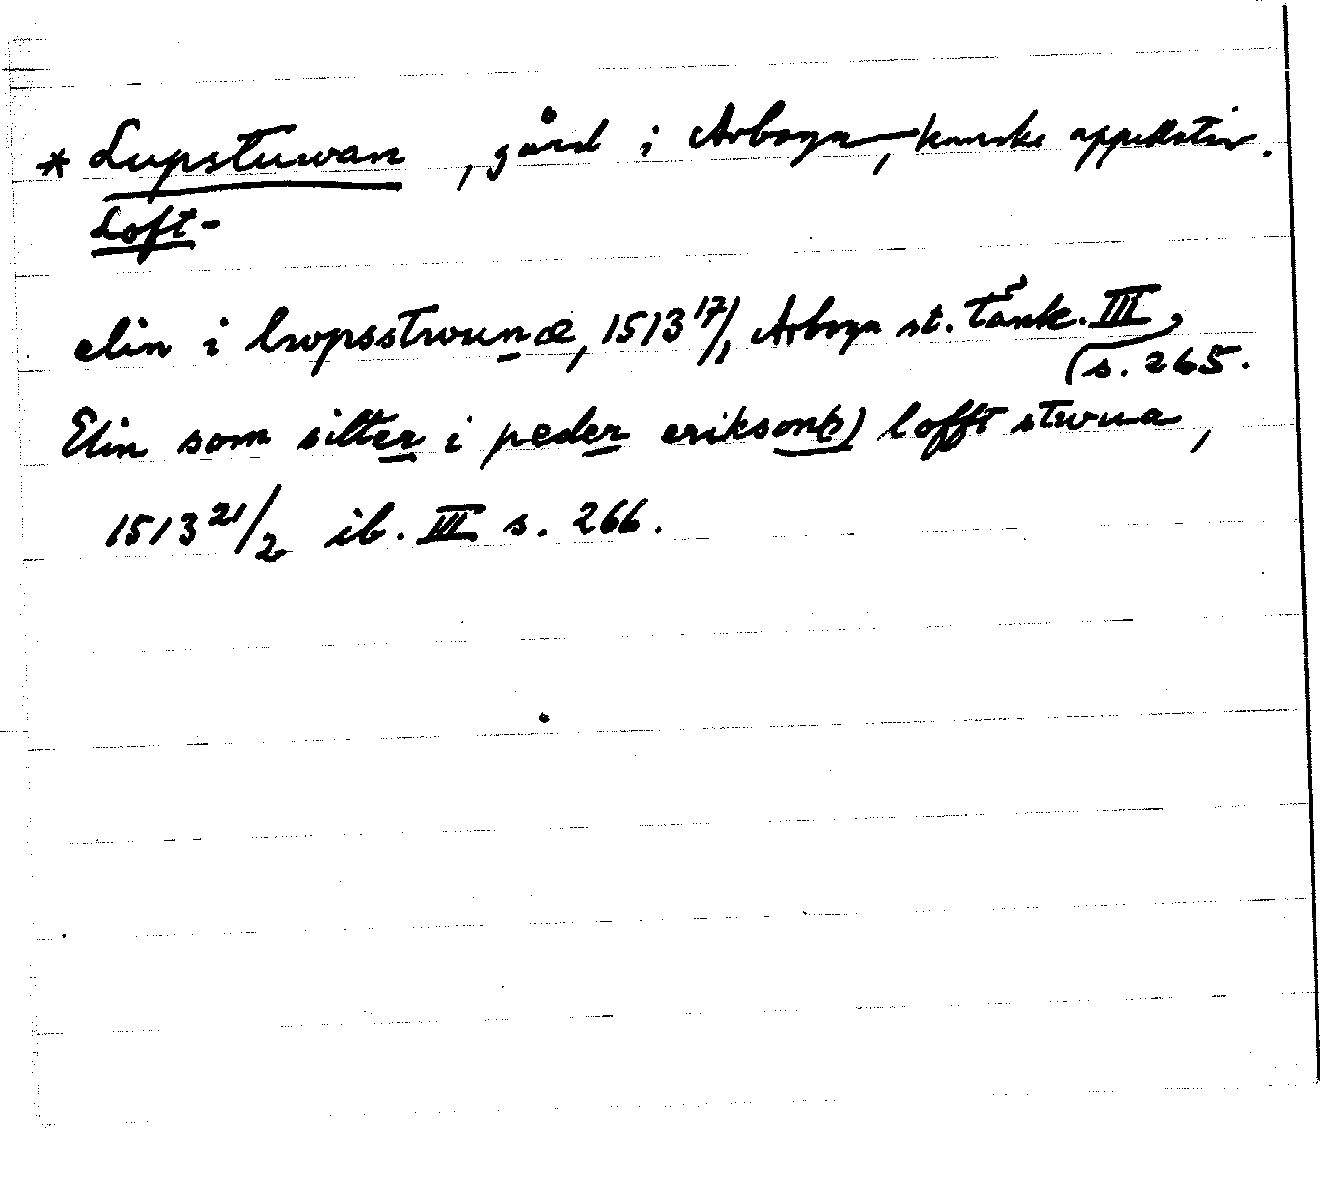 * Lupstuwan, gård i Arboga, kanske appellativ.
Loft-
elin i lwpsstwunæ, 1513 17/1, Arboga st. tänk. III,
(s. 265.
Elin som sitter i peder eriksons) lofft stwua,
1513 21/2 ib. III s. 266.